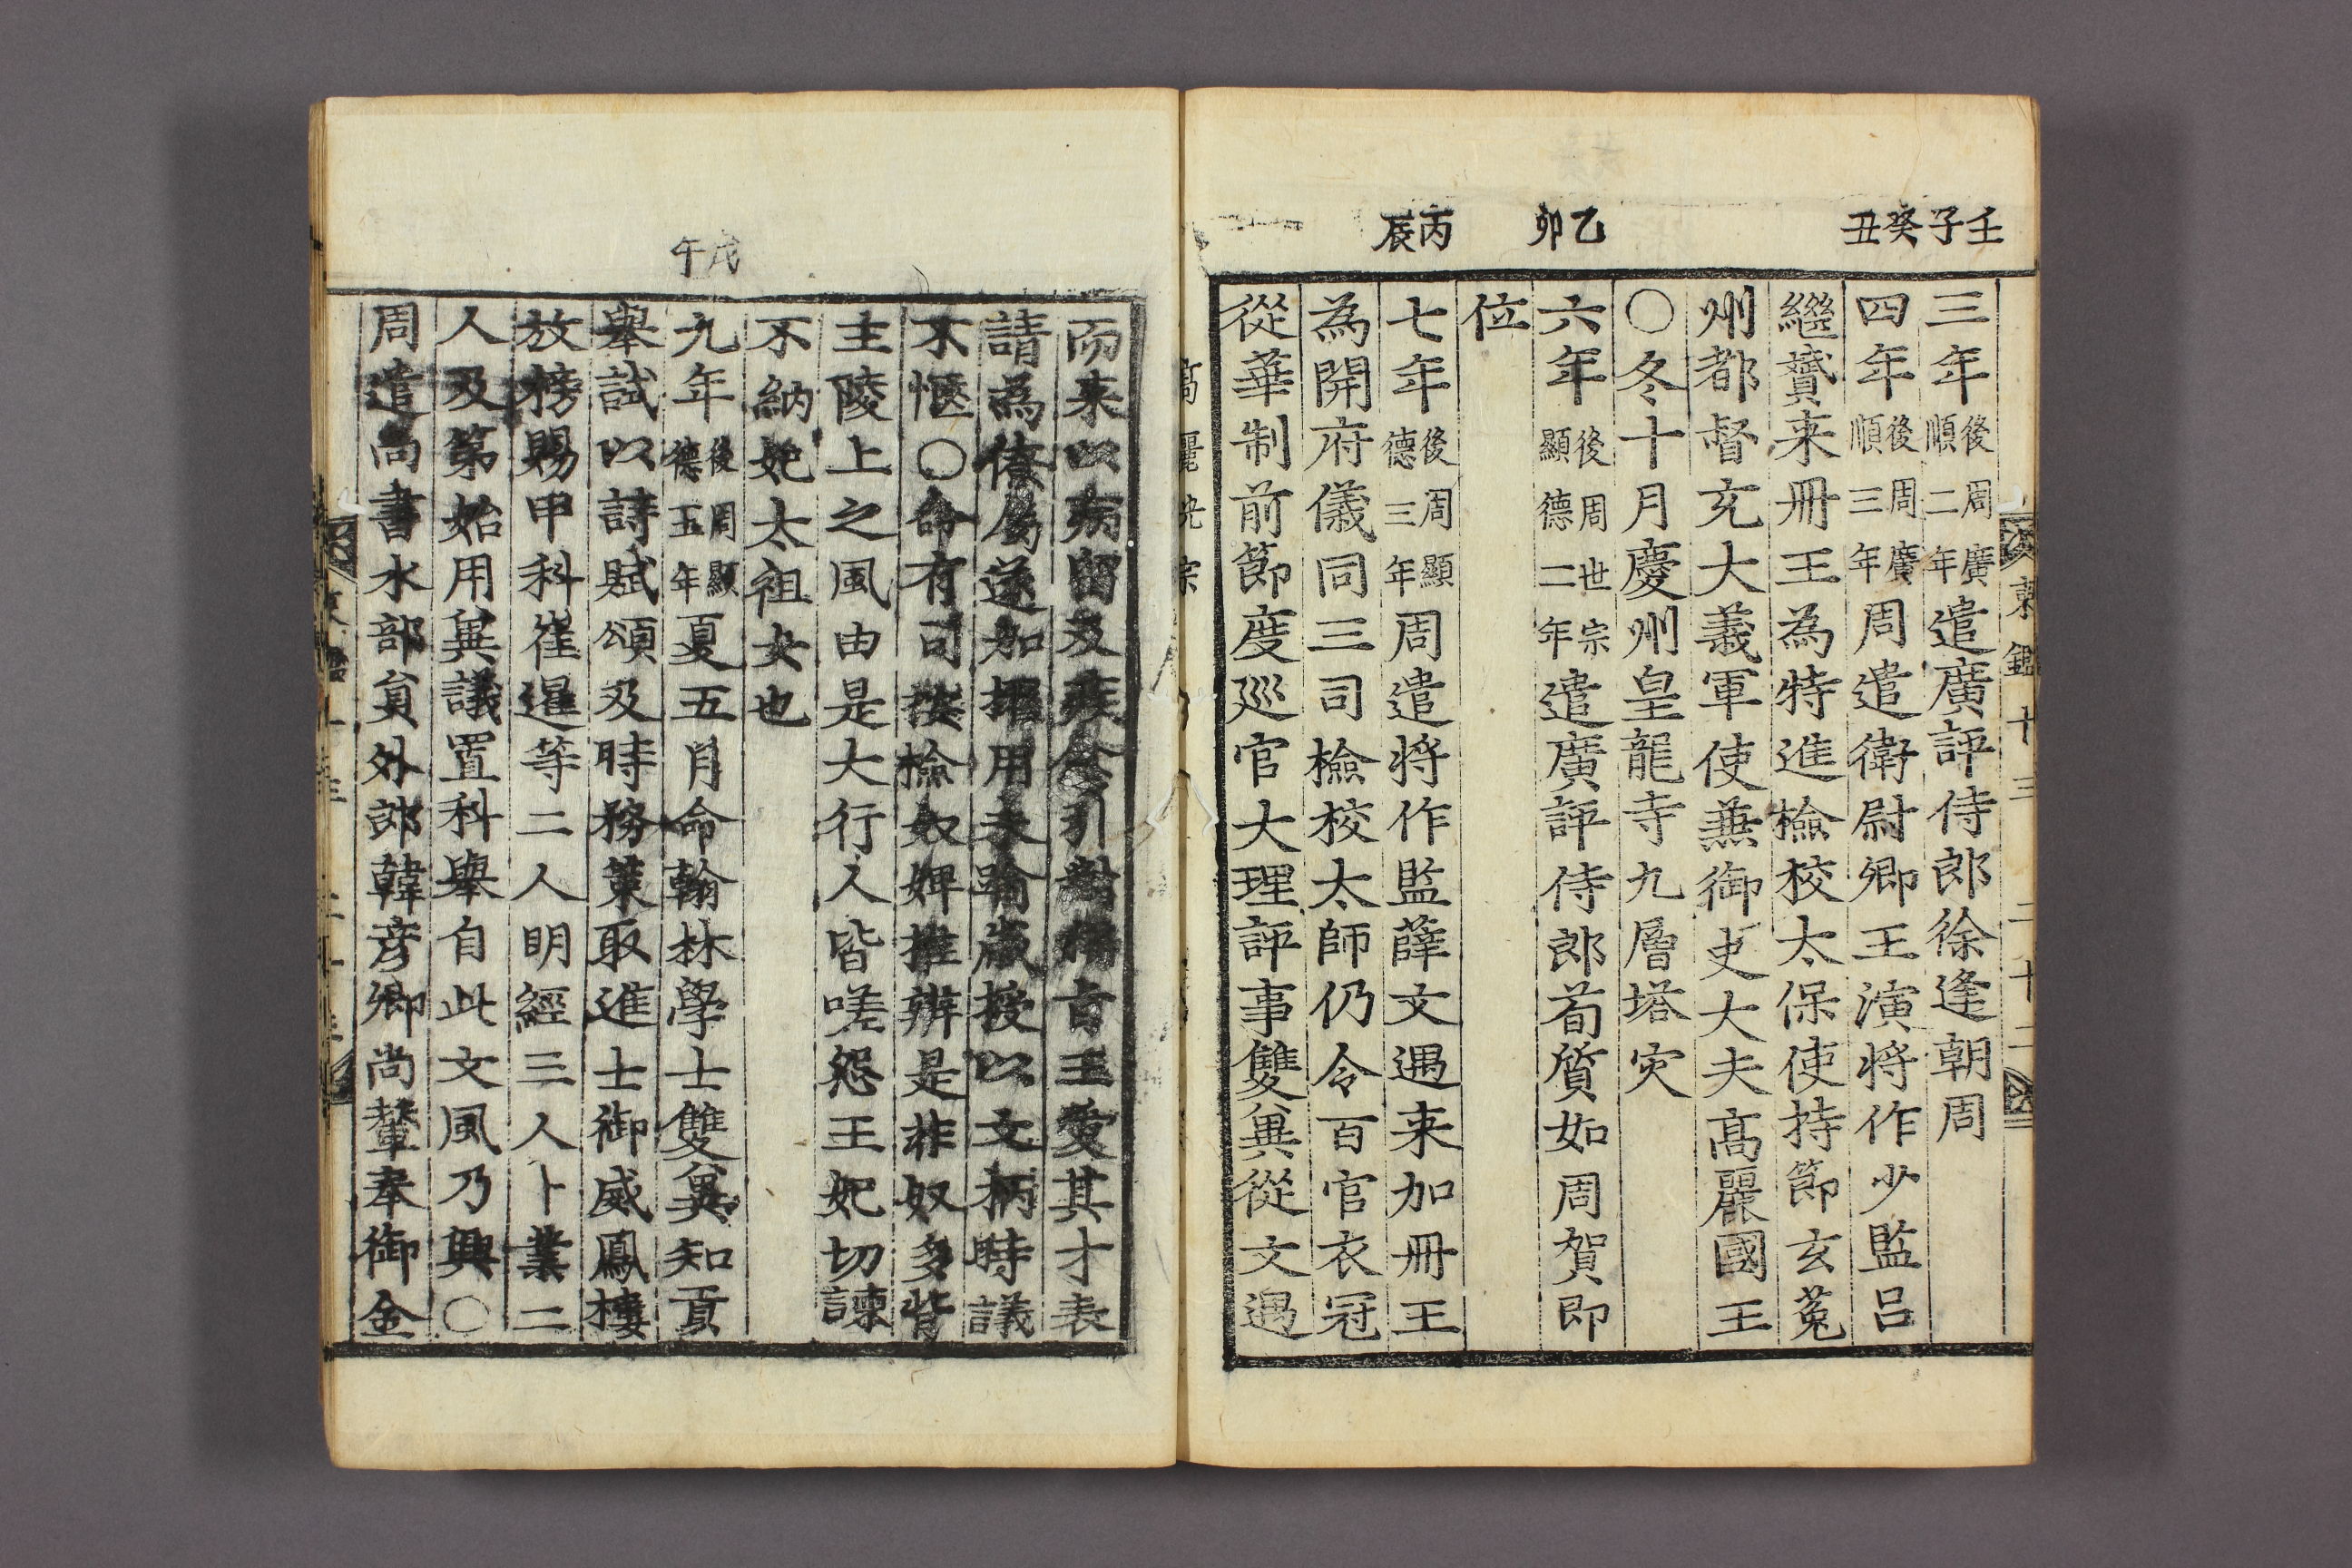 壬子
癸丑
乙卯
丙辰
東鑑十三 二十二
三年後周廣順二年遣廣評侍郎徐逢朝周
四年後周廣順三年周遣衛尉卿王演將作少監呂
繼贇来冊王為特進檢校太保使持節玄菟
州都督充大義軍使兼御史大夫高麗國王
○冬十月慶州皇龍寺九層塔灾
六年後周世宗顯德二年遣廣評侍郎荀質如周賀即
位
七年後周顯德三年周遣將作監薛文遇来加冊王
為開府儀同三司檢校太師仍令百官衣冠
從華制前節度廵官大理評事雙兾從文遇
高麗光宗
戊午
而来以病留及疾愈引對稱旨王愛其才表
請為僚屬遂加擢用未踰歲授以文柄時議
不愜○命有司按檢奴婢推辨是非奴多背
主陵上之風由是大行人皆嗟怨王妃切諫
不納妃太祖女也
九年後周顯德五年夏五月命翰林學士雙兾知貢
舉試以詩賦頌及時務策取進士御威鳳樓
放榜賜甲科崔暹等二人明經三人卜業二
人及第始用兾議置科舉自此文風乃興○
周遣尚書水部負外郎韓彦卿尚輦奉御金